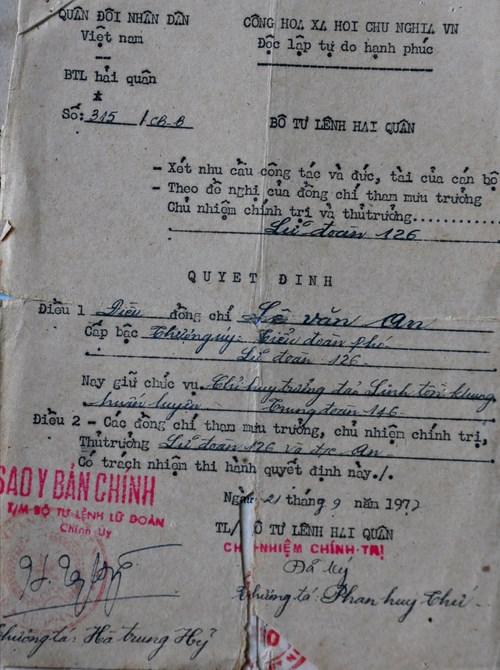 QUÂN ĐỘI NHÂN DÂN
Việt nam
BTL hải quân
Số: 315 / CB-B
CỘNG HOA XA HOI CHU NGHIA VN
Độc lập tự do hạnh phúc
BỘ TƯ LỆNH HAI QUÂN
- Xét nhu cầu công tác và đức, tài của cán bộ
- Theo đề nghị của đồng chí tham mưu trưởng
Chủ nhiệm chính trị và thủ trưởng..........
Lữ đoàn 126
QUYET ĐINH
Điều 1 Điều đồng chí Lê văn An
Cấp bậc Thượng úy: Tiểu đoàn phó
Lữ đoàn 126.
Nay giữ chức vụ Chỉ huy trưởng đảo Sinh tồn khung
huấn luyện Trung đoàn 146
Điều 2 - Các đồng chí tham mưu trưởng, chủ nhiệm chính trị,
Thủ trưởng Lữ đoàn 126 và đ/c An
Có trách nhiệm thi hành quyết định này./.
Ngày 21 tháng 9 năm 1977
TL/ BỘ TƯ LỆNH HAI QUÂN
CHỦ-NHIỆM CHÍNH-TRỊ
Đã ký
Thượng tá: Phan huy Chữ.
SAO Y BẢN CHÍNH
T/M BỘ TƯ LỆNH LỮ ĐOÀN
Chính ủy
Thượng tá: Hà trung Hỷ